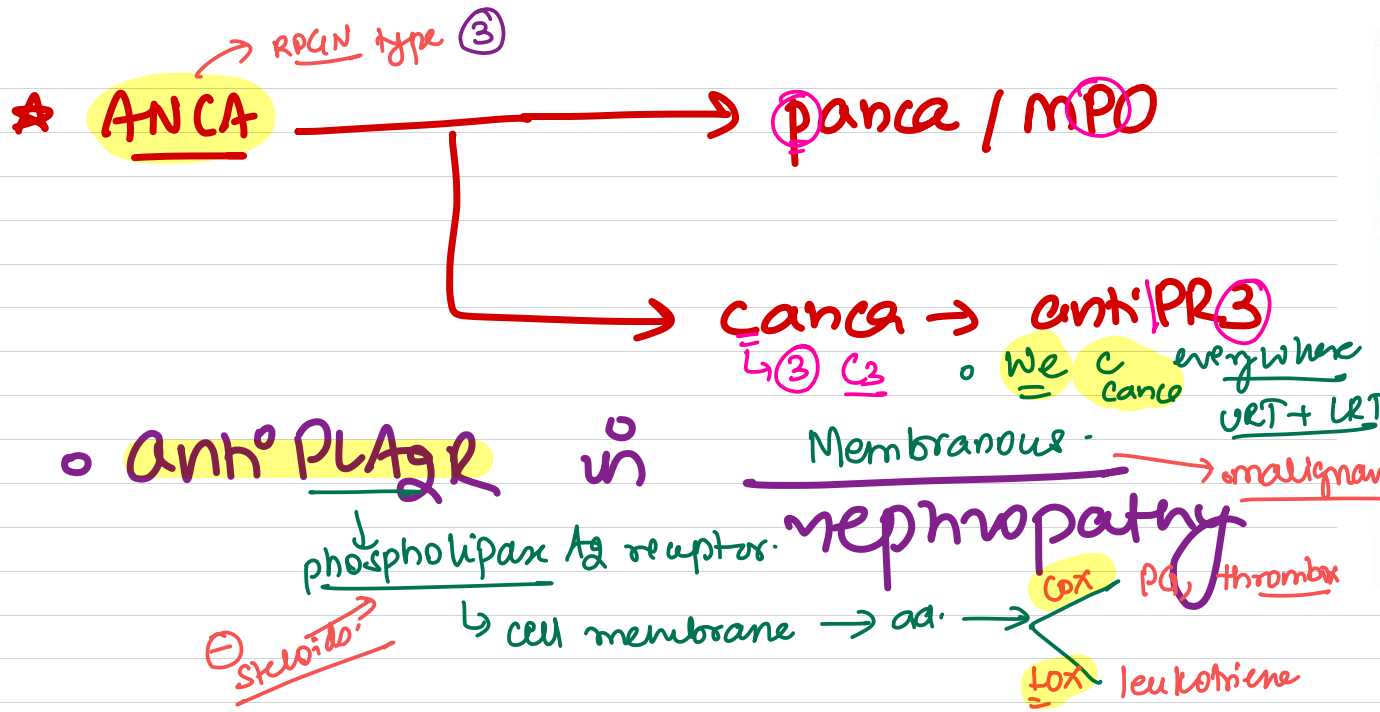 RPGN type 3
ANCA → panca / MPO
canca → anti PR3
↳ 3 C3 • We C everywhere
canca
URT + LRT
• anti PLA2R in Membranous nephropathy → malignan
phospholipase A2 receptor.
⊖ steroids.
↳ cell membrane → aa. →
cox PG, thrombx
Lox leukotriene